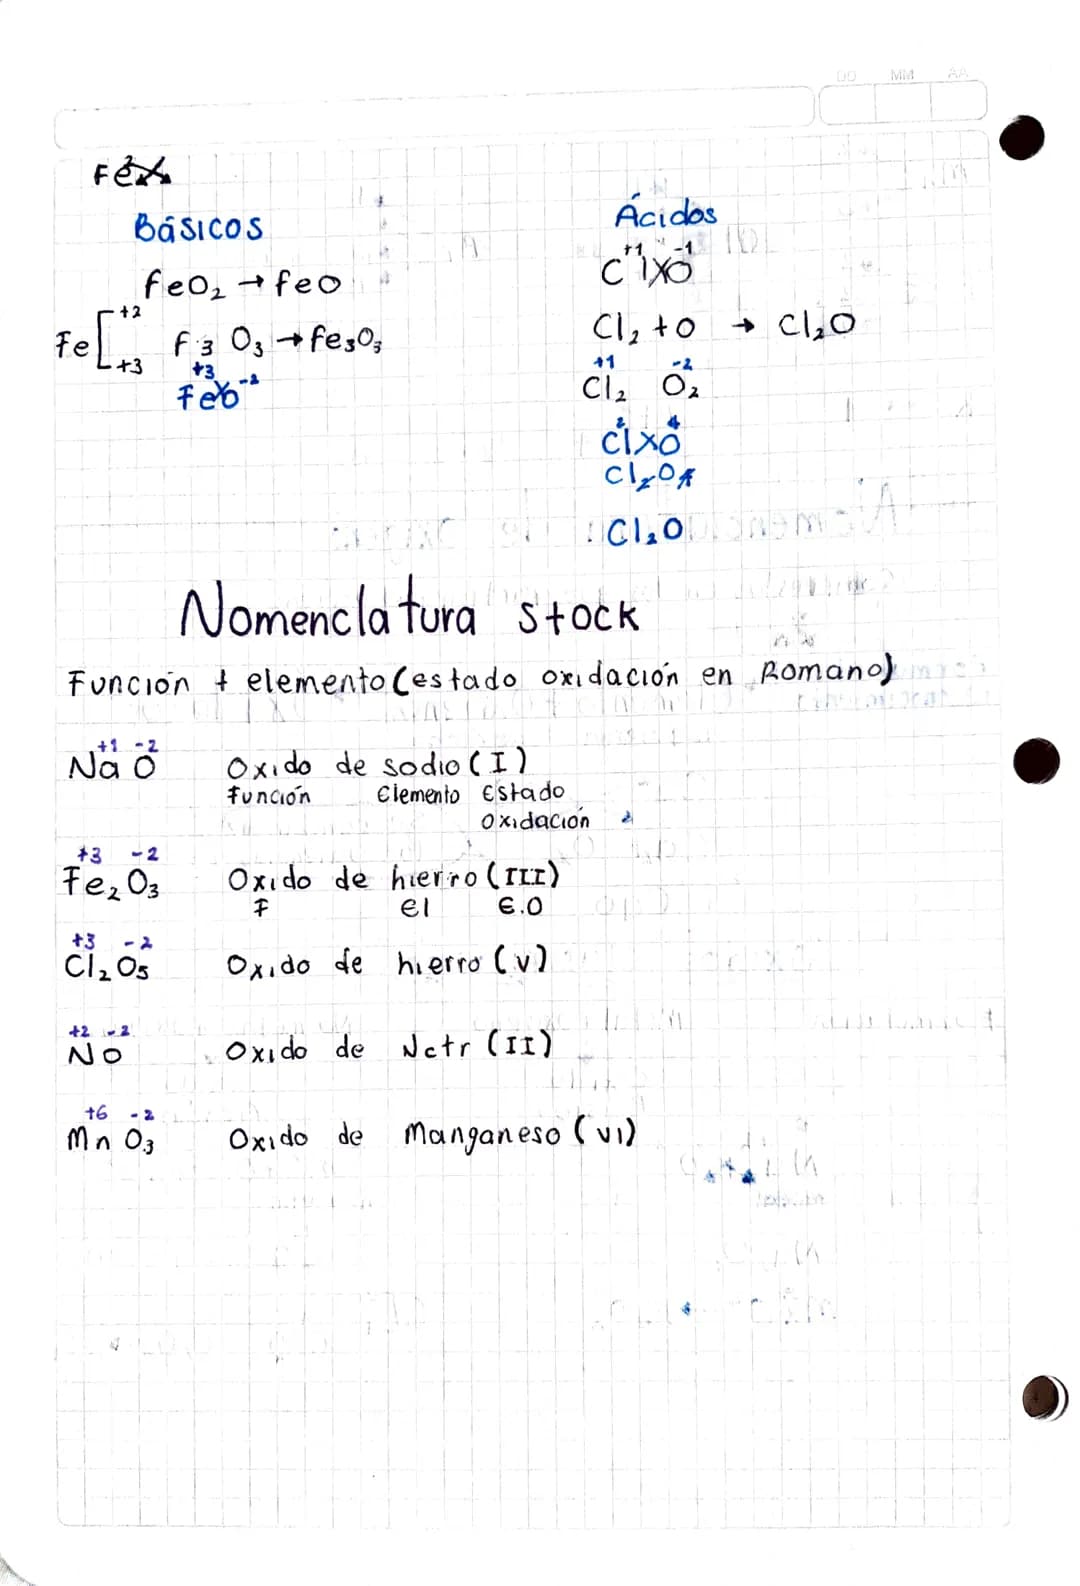 DD MM AA
Básicos
FeO₂ → feO
Fe +2 +3
F 3 O₃ → fe₃O₃
+3 -2
FeXO
Ácidos
+1 -1
ClXO
Cl₂ + O → Cl₂O
+1 -2
Cl₂ O₂
2 4
ClXO
Cl₂O
Nomenclatura stock
Función + elemento (estado oxidación en Romano)
+1 -2
Na O Oxido de sodio (I)
función Elemento Estado
oxidación
+3 -2
Fe₂ O₃ Oxido de hierro (III)
F el E.O
+3 -2
Cl₂ O₅ Oxido de hierro (V)
+2 -2
NO Oxido de Nctr (II)
+6 -2
Mn O₃ Oxido de Manganeso (VI)